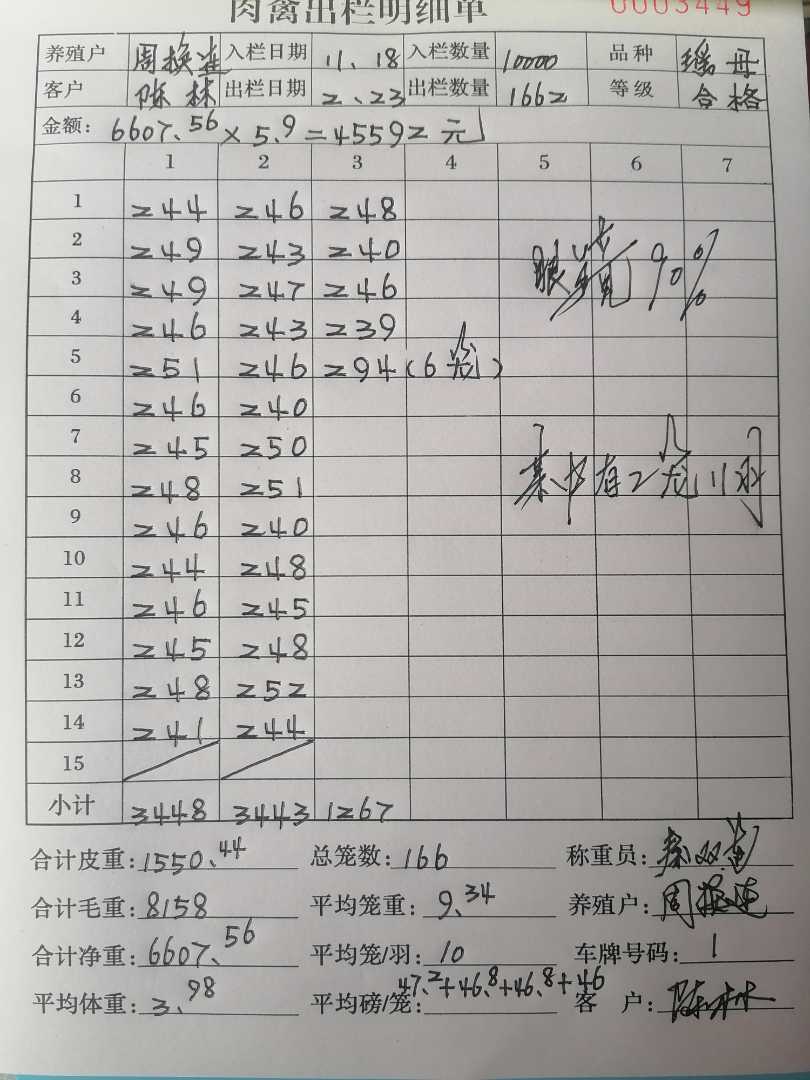 肉禽出栏明细单 0003449
养殖户 周换连 入栏日期 11.18 入栏数量 10000 品种 瑶母
客户 陈林 出栏日期 2.23 出栏数量 1662 等级 合格
金额: 6607.56 × 5.9 = 45592 元
1 2 3 4 5 6 7
1 244 246 248
2 249 243 240
3 249 247 246
4 246 243 239
5 251 246 294 (6笼)
6 246 240
7 245 250
8 248 251
9 246 240
10 244 248
11 246 245
12 245 248
13 248 252
14 241 244
15
小计 3448 3443 1267
90%
其中有2笼11羽
合计皮重: 1550.44 总笼数: 166 称重员:
合计毛重: 8158 平均笼重: 9.34 养殖户: 周换连
合计净重: 6607.56 平均笼/羽: 10 车牌号码: 1
平均体重: 3.98 平均磅/笼: 47.2+46.8+46.8+46 客 户: 陈林